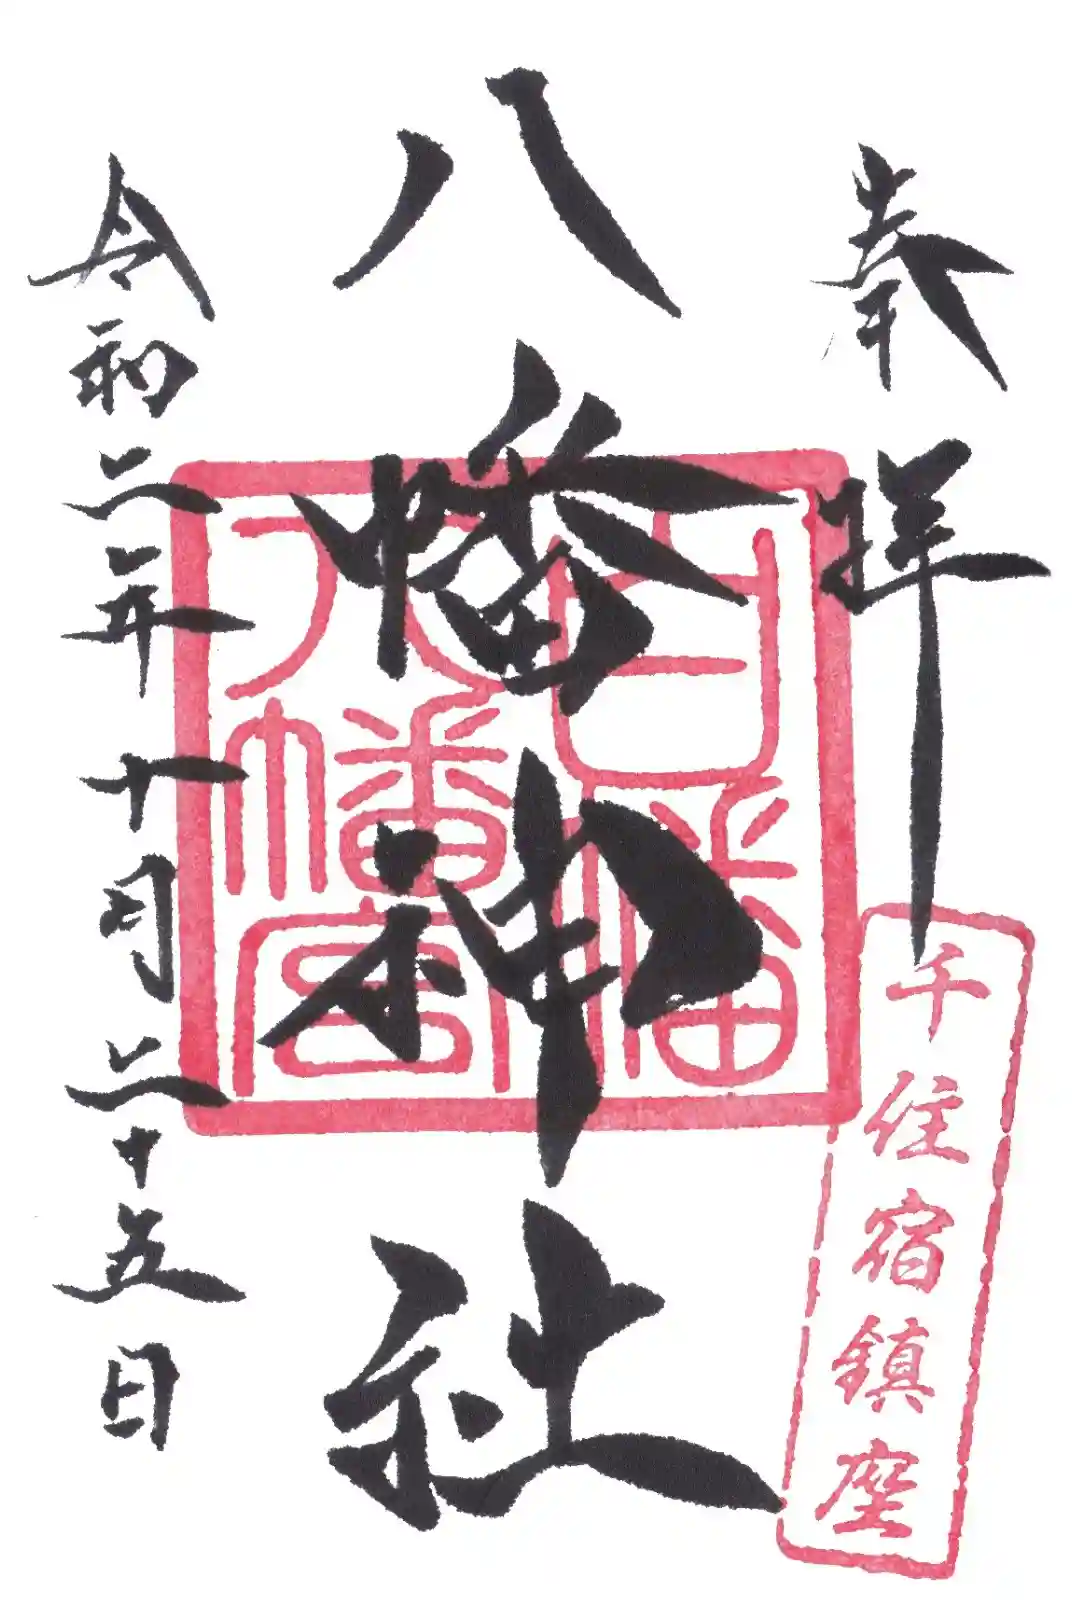 奉拝
千住宿鎮座
八幡神社
白幡
八幡宮
令和二年十月二十五日